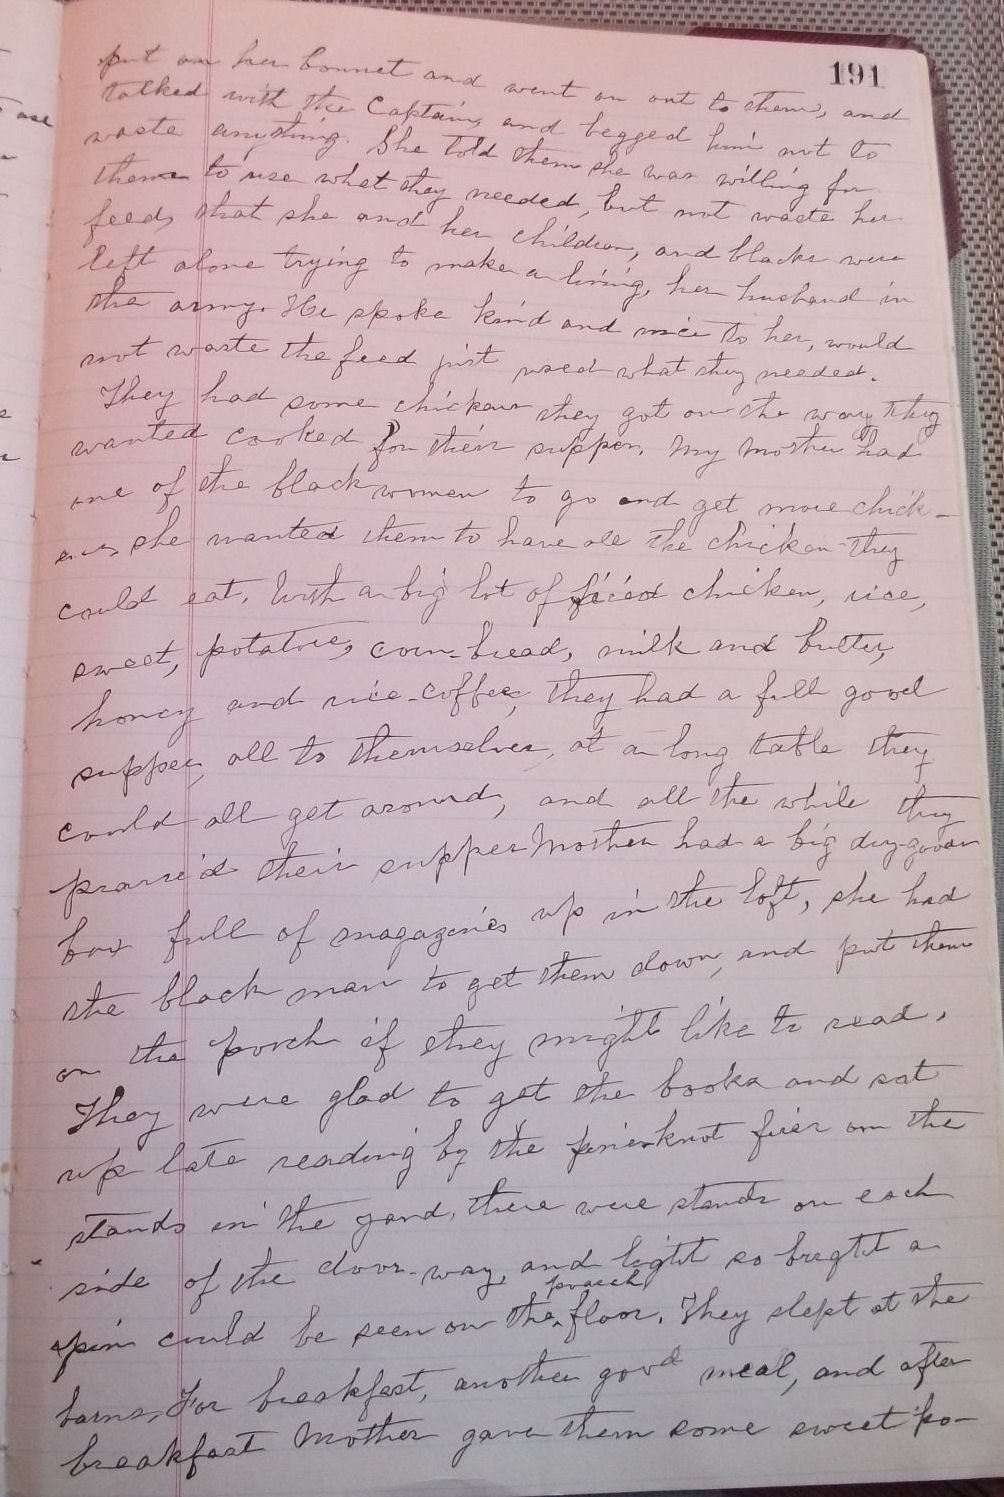 191
put on her bonnet and went on out to them, and
talked with the Captain, and begged him not to
waste anything. She told them she was willing for
them to use what they needed, but not waste her
feed, that she and her children, and blacks were
left alone trying to make a living, her husband in
the army. He spoke kind and nice to her, would
not waste the feed just used what they needed.
They had some chickens they got on the way they
wanted cooked for their supper. My Mother had
one of the black women to go and get more chick-
ens, she wanted them to have all the chicken they
could eat. With a big lot of fried chicken, rice,
sweet, potatoes, corn-bread, milk and butter,
honey and rice-coffee, they had a full good
supper, all to themselves, at a long table they
could all get around, and all the while they
prarie'd their supper Mother had a big dry-goods
box full of magazines up in the loft, she had
the black man to get them down, and put them
on the porch if they might like to read.
They were glad to get the books and sat
up late reading by the pine-knot fire on the
stands in the yard, there were stands on each
side of the door-way, and light so bright a
porch
pin could be seen on the floor. They slept at the
barns. For breakfast, another good meal, and after
breakfast Mother gave them some sweet po-